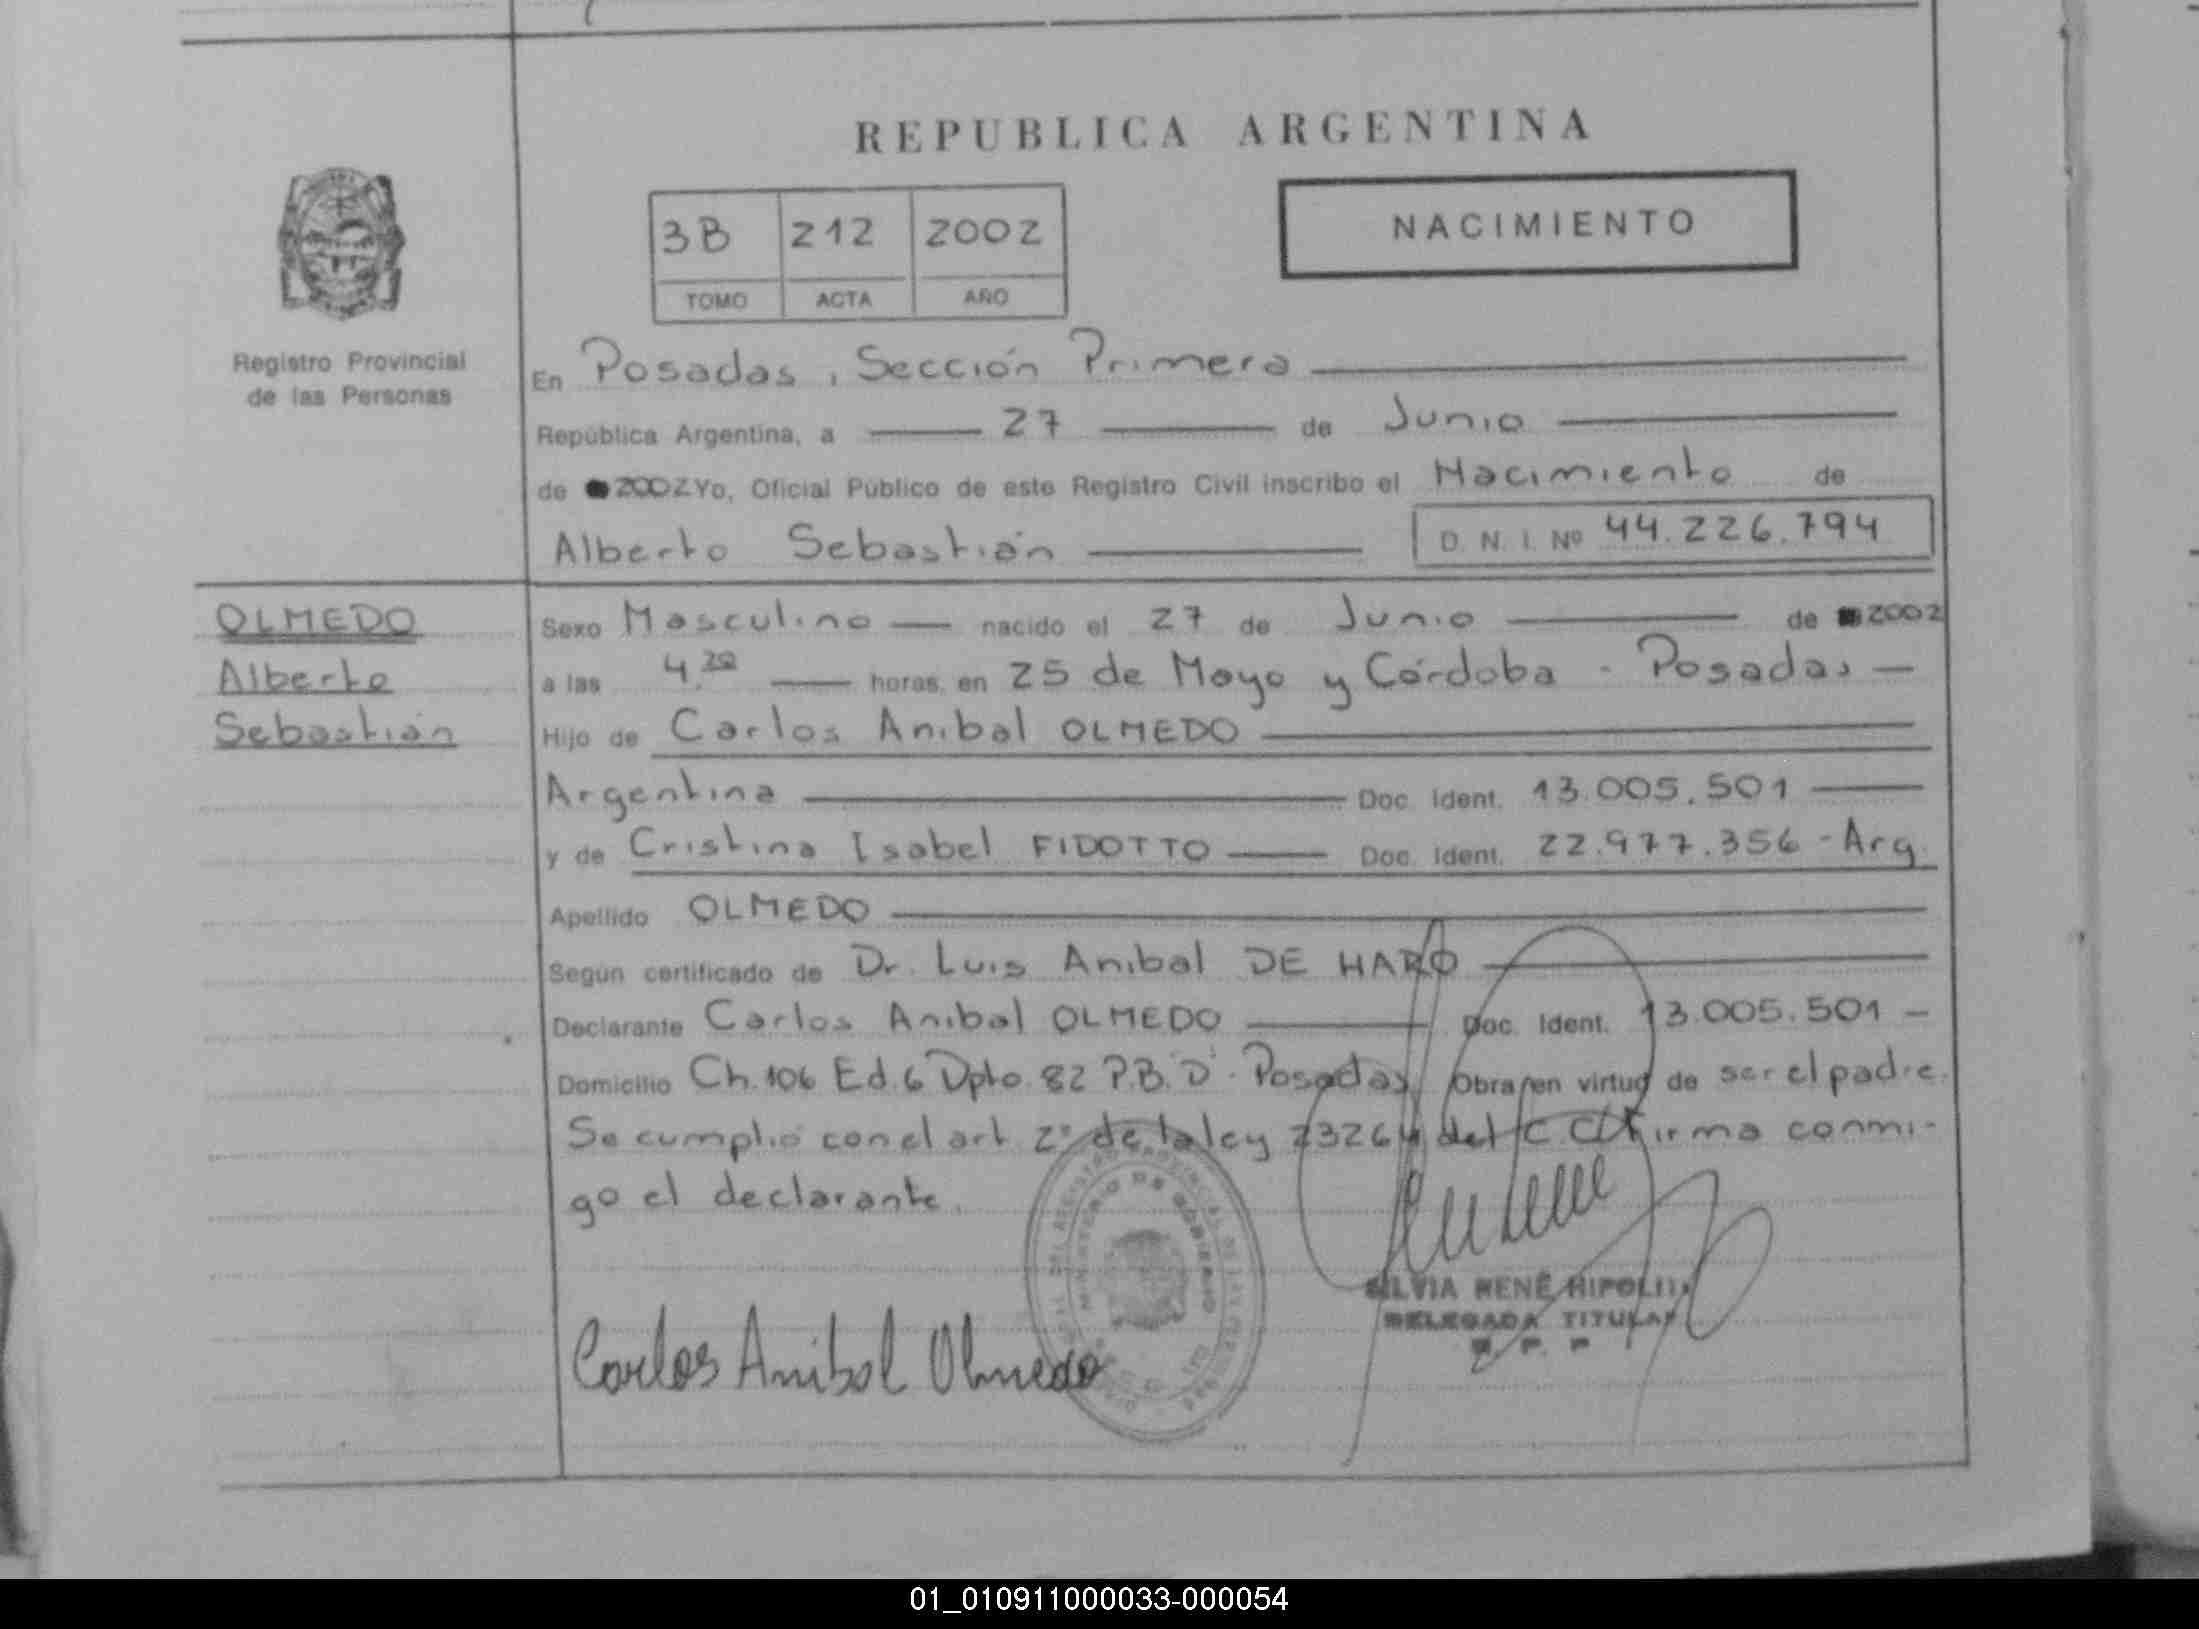 REPUBLICA ARGENTINA
3B 212 2002
TOMO ACTA AÑO
NACIMIENTO
Registro Provincial
de las Personas
En Posadas, Sección Primera
República Argentina, a 27 de Junio
de 2002 Yo, Oficial Público de este Registro Civil inscribo el Nacimiento de
Alberto Sebastián D. N. I. Nº 44.226.794
OLMEDO
Alberto
Sebastián
Sexo Masculino nacido el 27 de Junio de 2002
a las 4.20 horas, en 25 de Mayo y Córdoba - Posadas
Hijo de Carlos Anibal OLMEDO
Argentina Doc. Ident. 13.005.501
y de Cristina Isabel FIDOTTO Doc. Ident. 22.977.356 - Arg.
Apellido OLMEDO
Según certificado de Dr. Luis Anibal DE HARO
Declarante Carlos Anibal OLMEDO Doc. Ident. 13.005.501
Domicilio Ch. 106 Ed. 6 Dpto. 82 P.B. "D" - Posadas Obra en virtud de ser el padre.
Se cumplió con el art. 2º de la ley 23264 del C C Firma conmi-
go el declarante.
MINISTERIO DE GOBIERNO
Carlos Anibal Olmedo
SILVIA RENÉ HIPOLITO
DELEGADA TITULAR
01_010911000033-000054